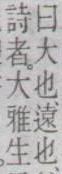 曰大也遠也
詩者。大雅生